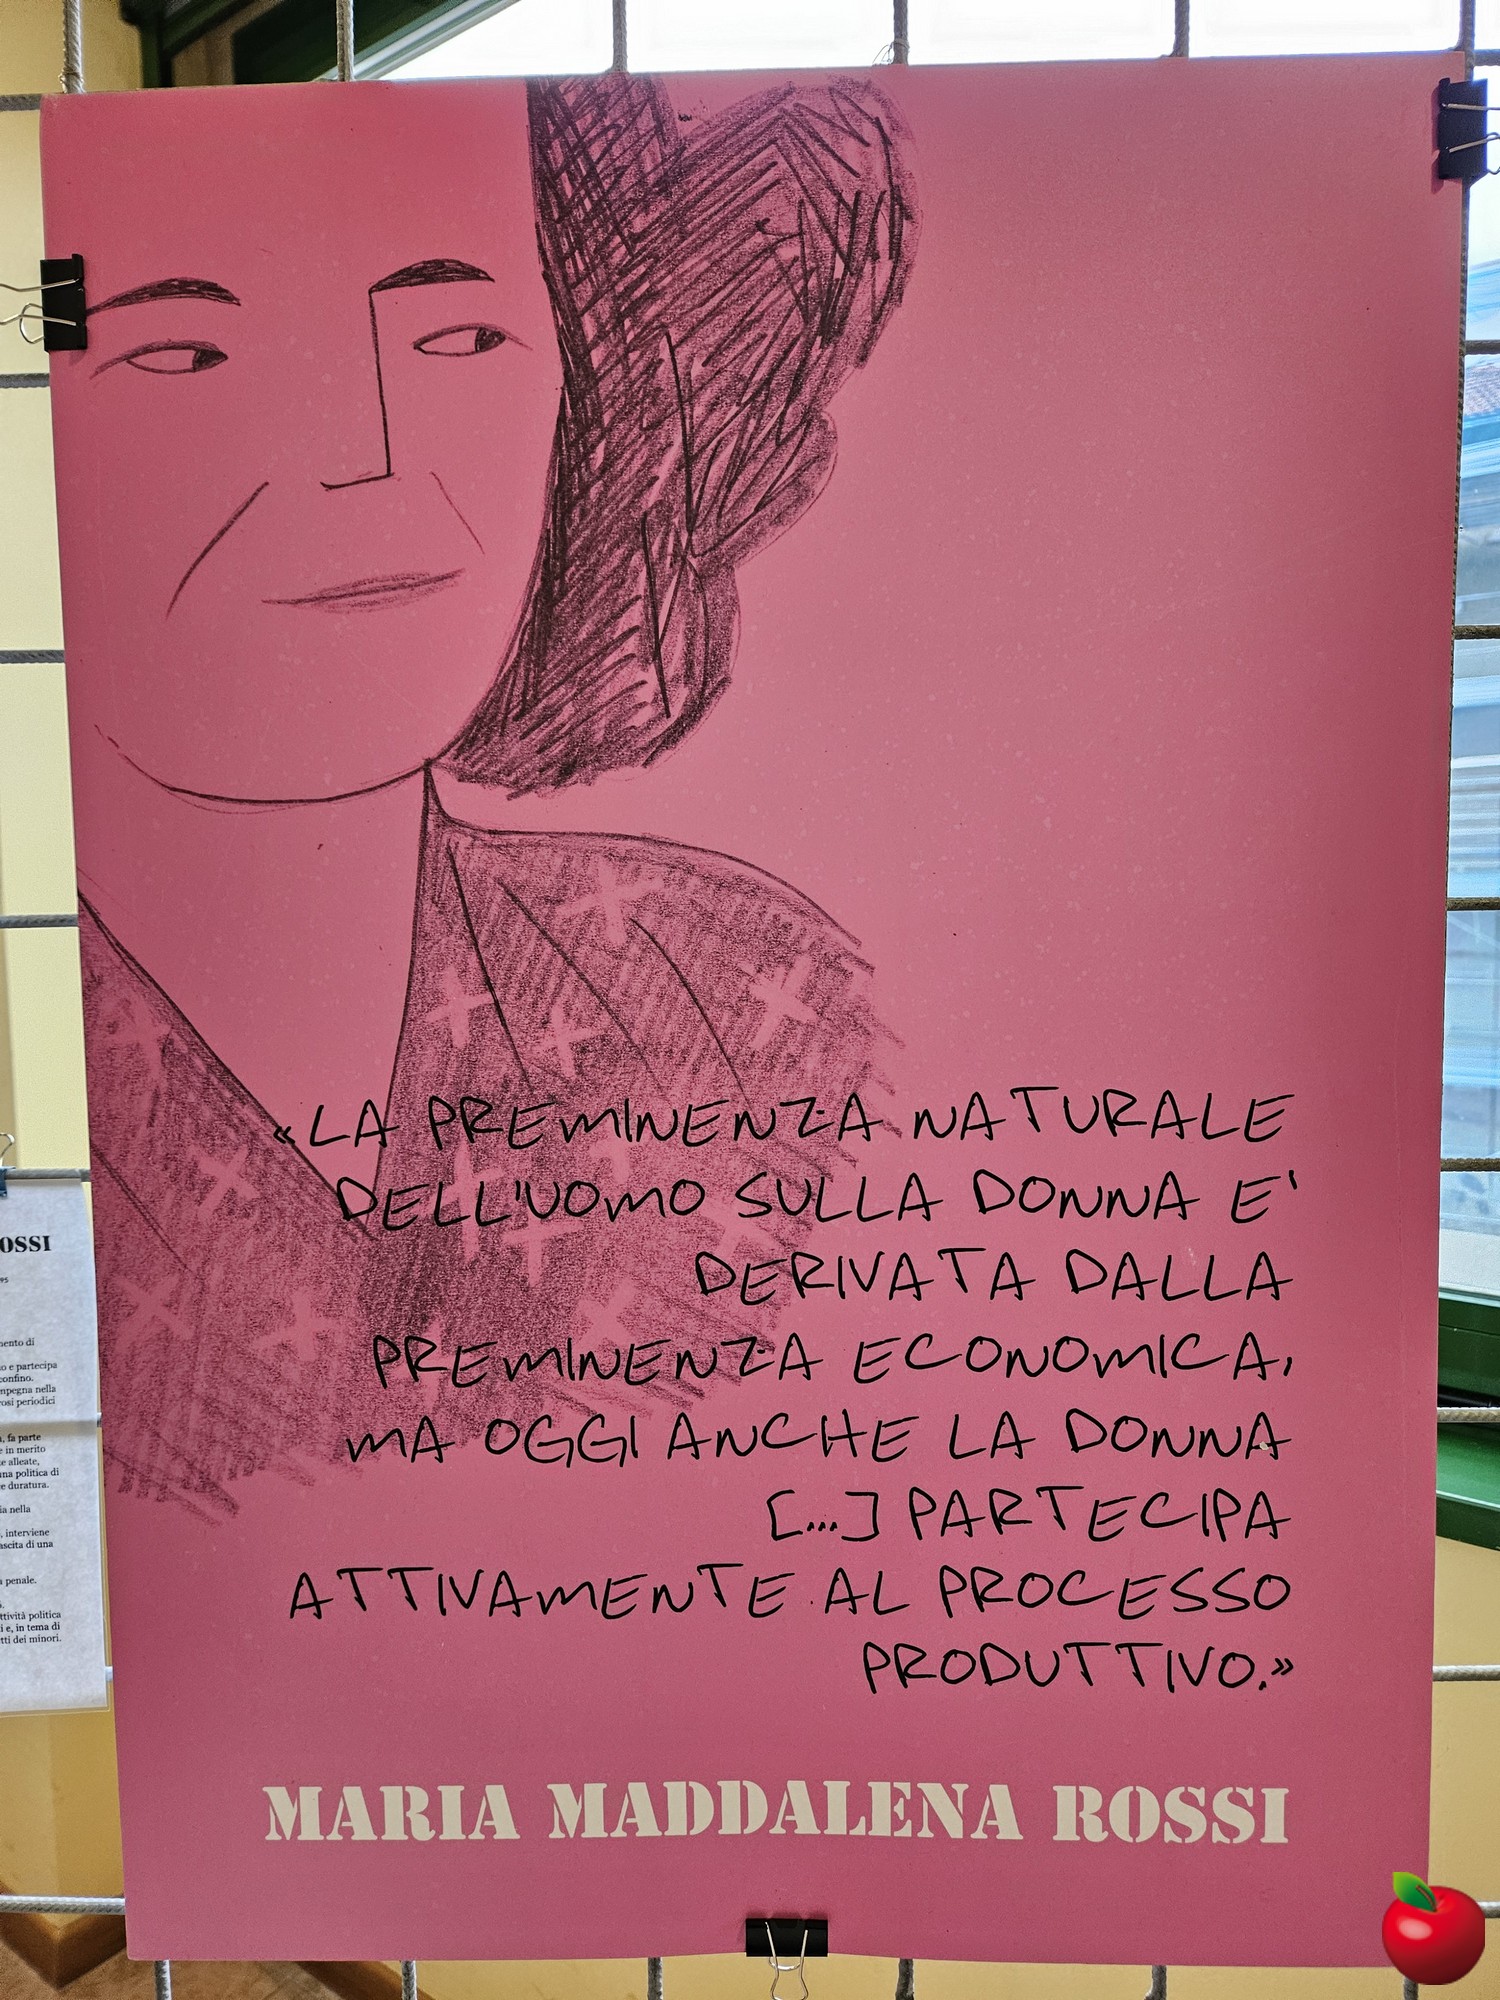 «LA PREMINENZA NATURALE
DELL'UOMO SULLA DONNA E'
DERIVATA DALLA
PREMINENZA ECONOMICA,
MA OGGI ANCHE LA DONNA
[...] PARTECIPA
ATTIVAMENTE AL PROCESSO
PRODUTTIVO.»
MARIA MADDALENA ROSSI
OSSI
95
mento di
o e partecipa
confino.
mpegna nella
rosi periodici
, fa parte
e in merito
e alleate,
una politica di
e duratura.
ia nella
, interviene
ascita di una
a penale.
ttività politica
i e, in tema di
tti dei minori.